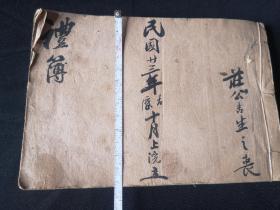 莊公吉生之喪
民國廿三年古曆十月上浣立
禮簿